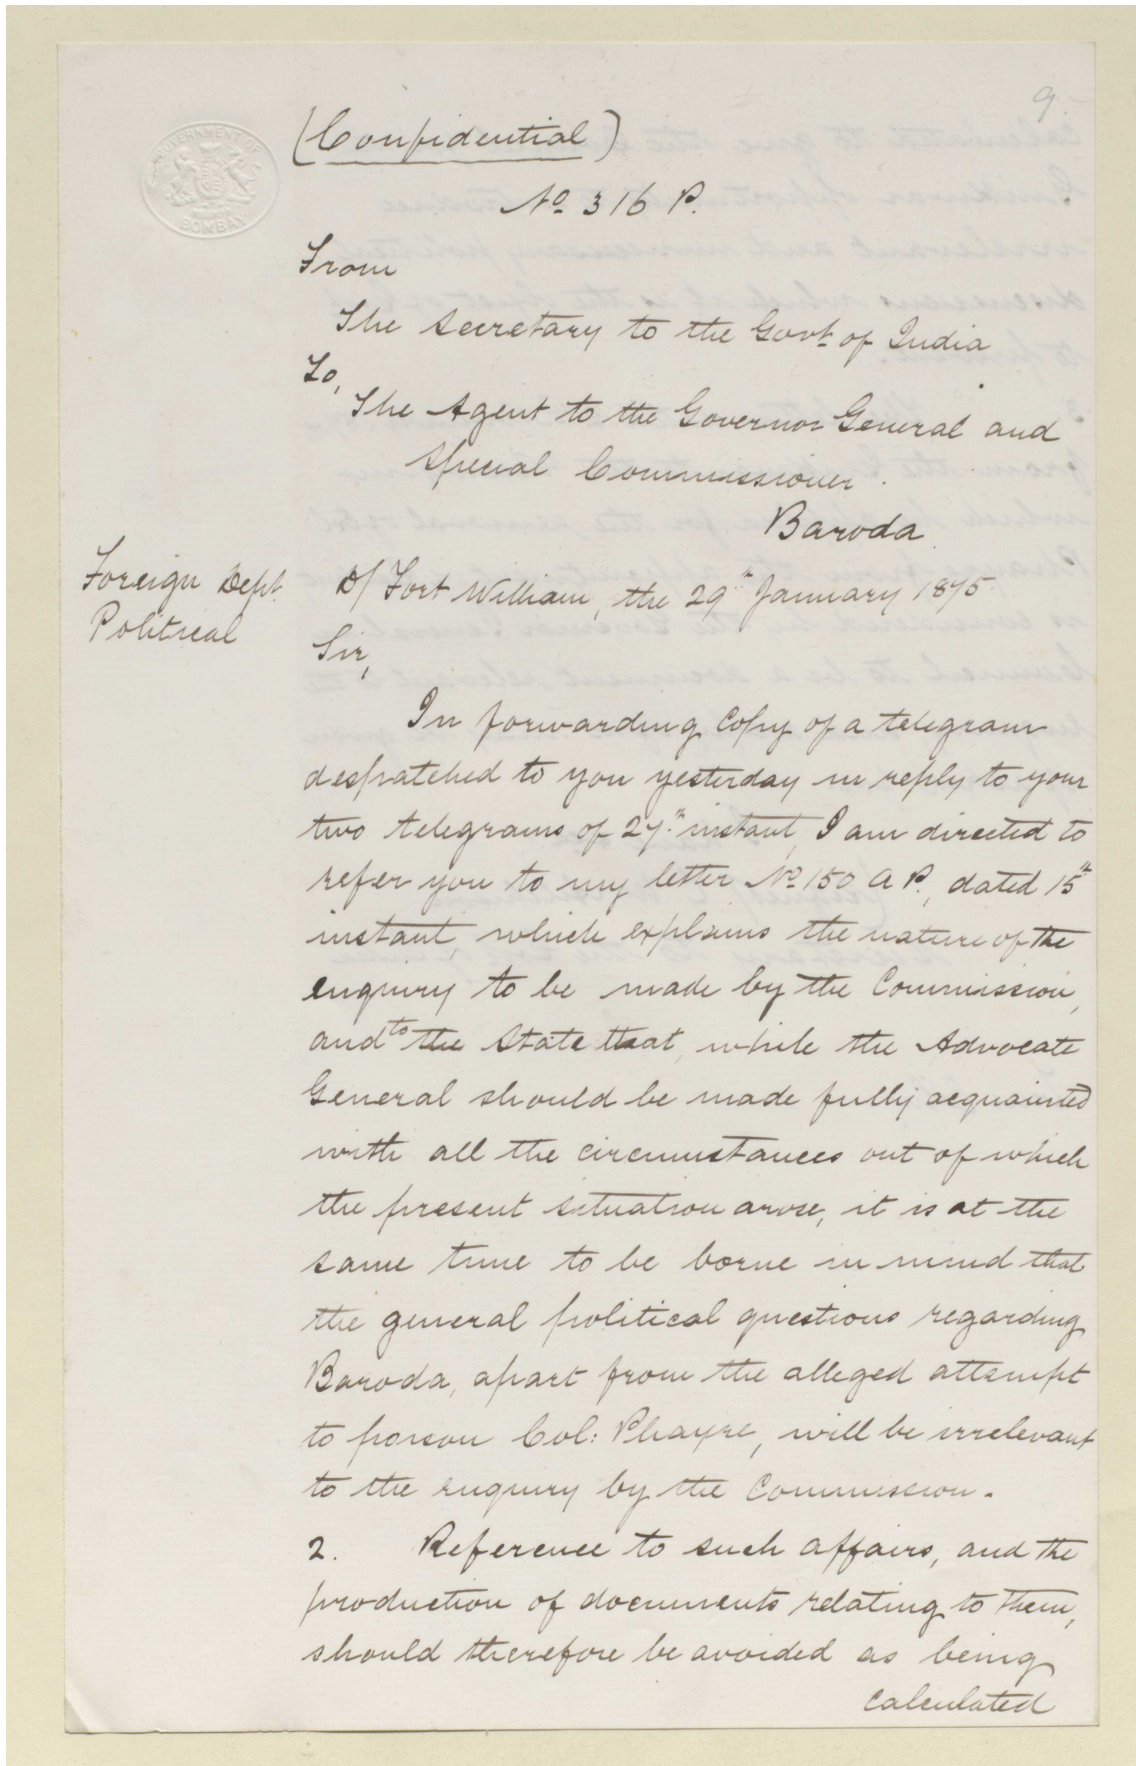 9.
GOVERNMENT OF
BOMBAY
(Confidential)
No 316 P.
From
The Secretary to the Govt. of India
To,
The Agent to the Governor General and
Special Commissioner.
Baroda.
Foreign Dept.
Political
D/ Fort William, the 29th January 1875.
Sir,
In forwarding Copy of a telegram
despatched to you yesterday in reply to your
two telegrams of 27th instant, I am directed to
refer you to my letter No 150 A P., dated 15th
instant, which explains the nature of the
enquiry to be made by the Commission,
and to the State that, while the Advocate
General should be made fully acquainted
with all the circumstances out of which
the present situation arose, it is at the
same time to be borne in mind that
the general political questions regarding
Baroda, apart from the alleged attempt
to poison Col: Phayre, will be irrelevant
to the enquiry by the Commission.
2. Reference to such affairs, and the
production of documents relating to them,
should therefore be avoided as being
calculated